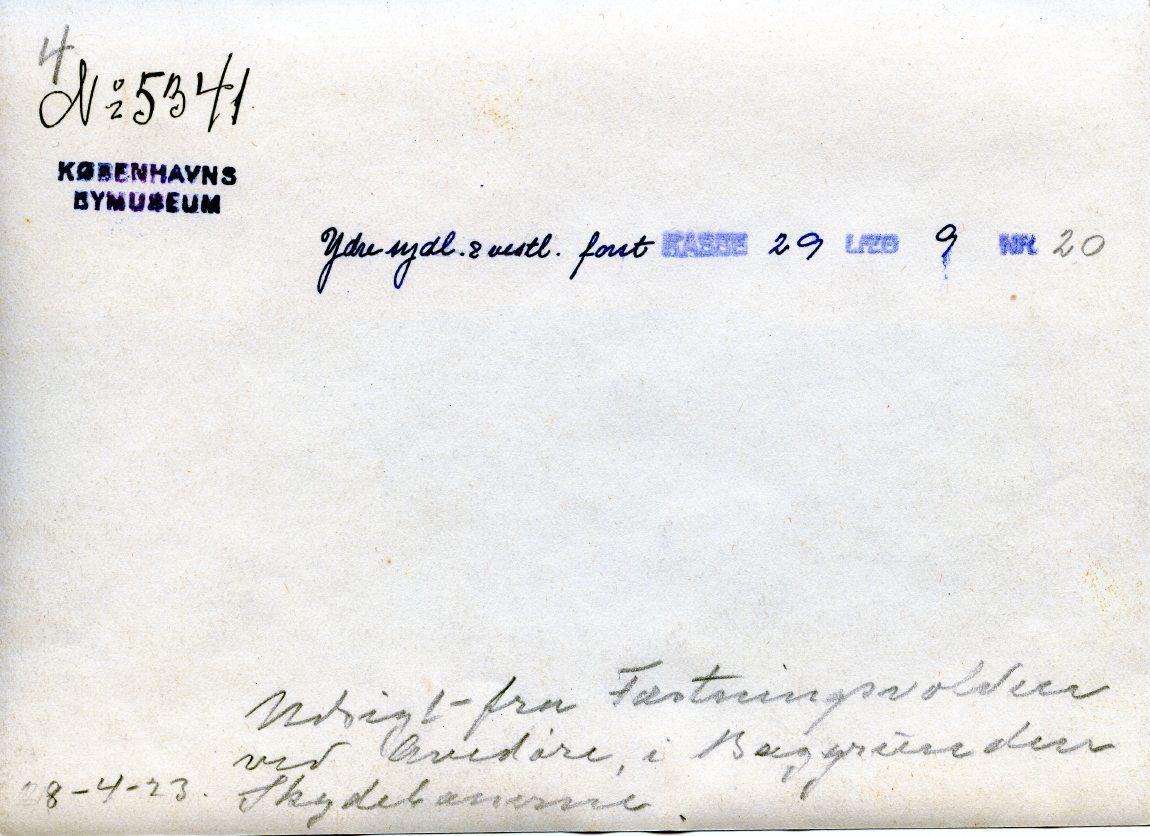 4
No 5341
KØBENHAVNS
BYMUSEUM
Ydre sydl. & vestl. forst KASSE 29 LÆG 9 NR. 20
Udsigt fra Fæstningsvolden
ved Avedøre, i Baggrunden
28-4-23. Skydebanerne